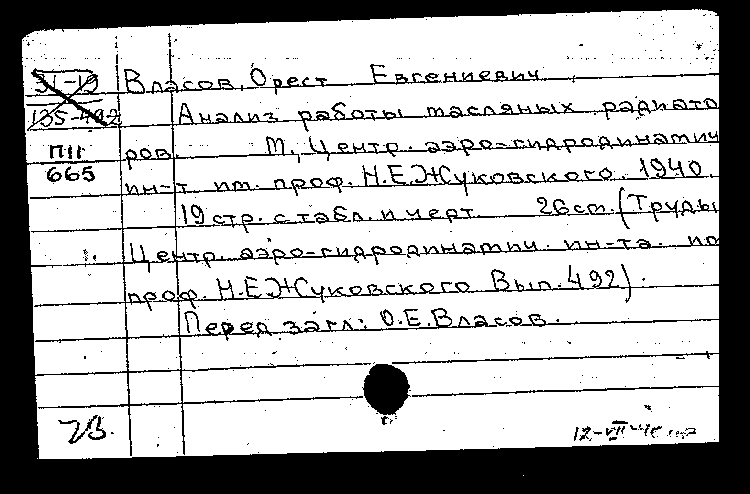 31-19
135-492
П11
665
Власов, Орест Евгениевич
Анализ работы масляных радиато
ров. М., Центр. аэро-гидродинатич
ин-т им. проф. Н.Е.Жуковского. 1940.
19 стр. с табл. и черт. 26 ст. (Труды
Центр. аэро-гидродинатич. ин-та. им
проф. Н.Е.Жуковского Вып. 492).
Перед загл: О.Е.Власов.
12-VII-